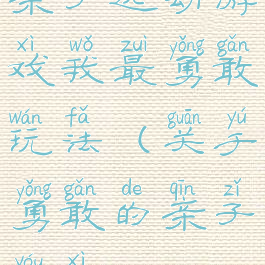 xì wǒ zuì yǒng gǎn
戏我最勇敢
wán fǎ guān yú
玩法（关于
yǒng gǎn de qīn zǐ
勇敢的亲子
yóu xì